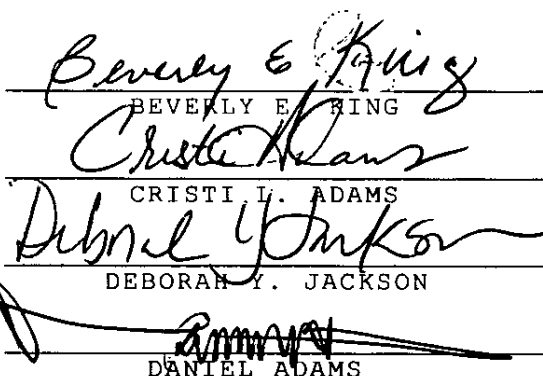 Beverly E King
BEVERLY E. KING
Cristi Adams
CRISTI L. ADAMS
Deborah Y Jackson
DEBORAH Y. JACKSON
DANIEL ADAMS